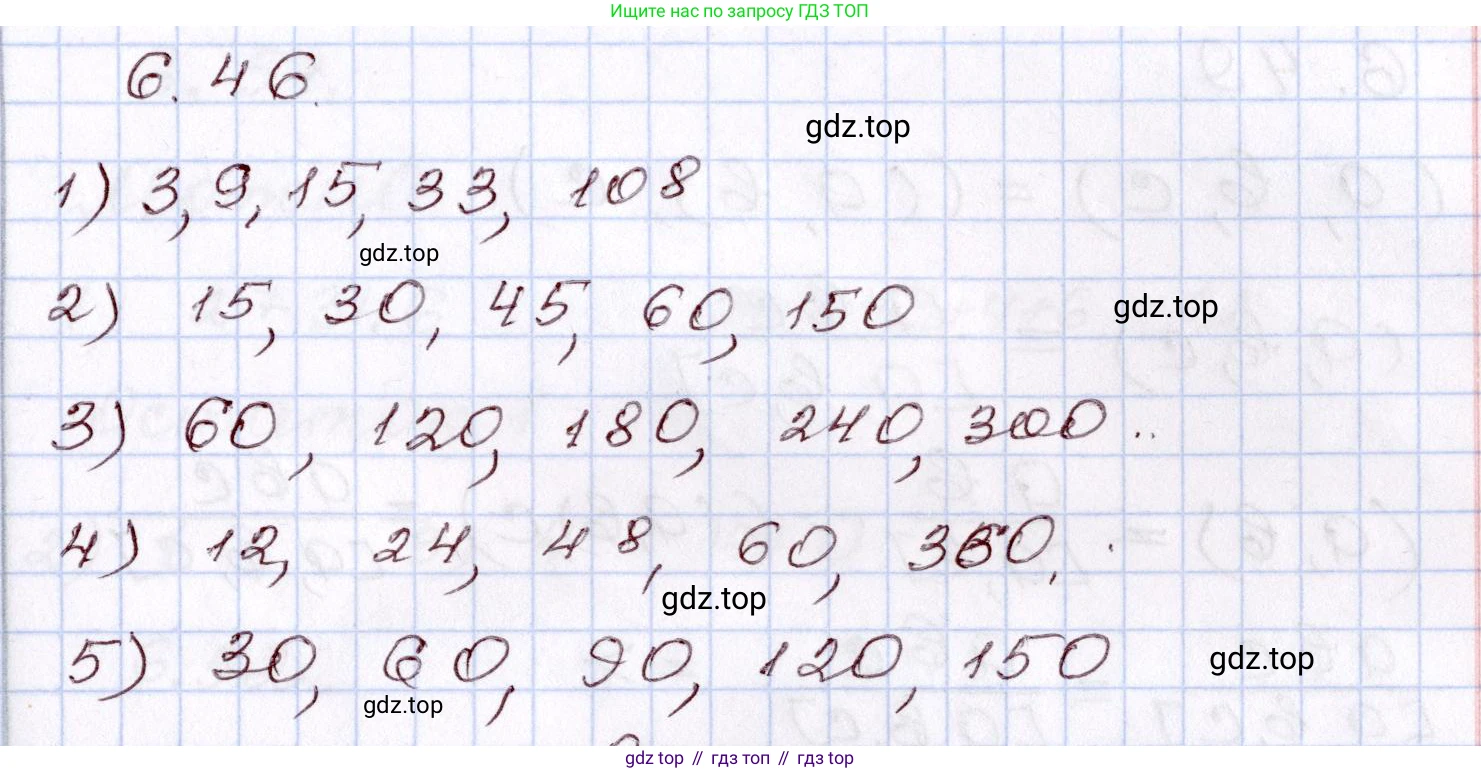 Ищите нас по запросу ГДЗ ТОП
6.46.
gdz.top
1) 3, 9, 15, 33, 108
gdz.top
2) 15, 30, 45, 60, 150
gdz.top
3) 60, 120, 180, 240, 300..
4) 12, 24, 48, 60, 360.
gdz.top
5) 30, 60, 90, 120, 150
gdz.top
gdz.top
gdz top // гдз топ // gdz top